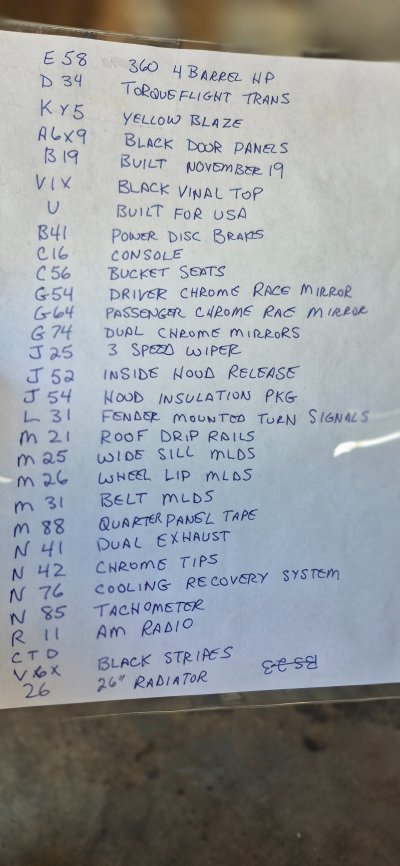 E58 360 4 BARREL HP
D 34 TORQUEFLIGHT TRANS
KY5 YELLOW BLAZE
A6X9 BLACK DOOR PANELS
B19 BUILT NOVEMBER 19
V1X BLACK VINAL TOP
U BUILT FOR USA
B41 POWER DISC BRAKES
C16 CONSOLE
C56 BUCKET SEATS
G54 DRIVER CHROME RACE MIRROR
G64 PASSENGER CHROME RAE MIRROR
G74 DUAL CHROME MIRRORS
J25 3 SPEED WIPER
J 52 INSIDE HOOD RELEASE
J 54 HOOD INSULATION PKG
L 31 FENDER MOUNTED TURN SIGNALS
M 21 ROOF DRIP RAILS
M 25 WIDE SILL MLDS
M 26 WHEEL LIP MLDS
M 31 BELT MLDS
M 88 QUARTERPANEL TAPE
N 41 DUAL EXHAUST
N 42 CHROME TIPS
N 76 COOLING RECOVERY SYSTEM
N 85 TACHOMETER
R 11 AM RADIO
CTD
V6X BLACK STRIPES
26 26" RADIATOR